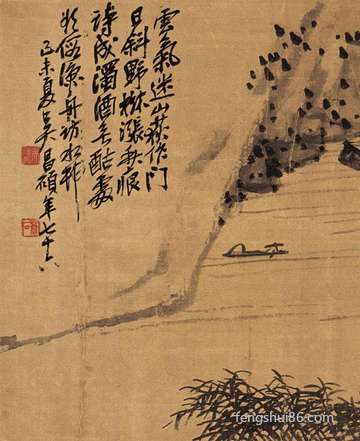 雲氣迷山荻作門
日斜野樹漲秋痕
詩成濁酒無酤處
漁舟訪水邨
己未夏吳昌碩年七十六
fengshui86.com